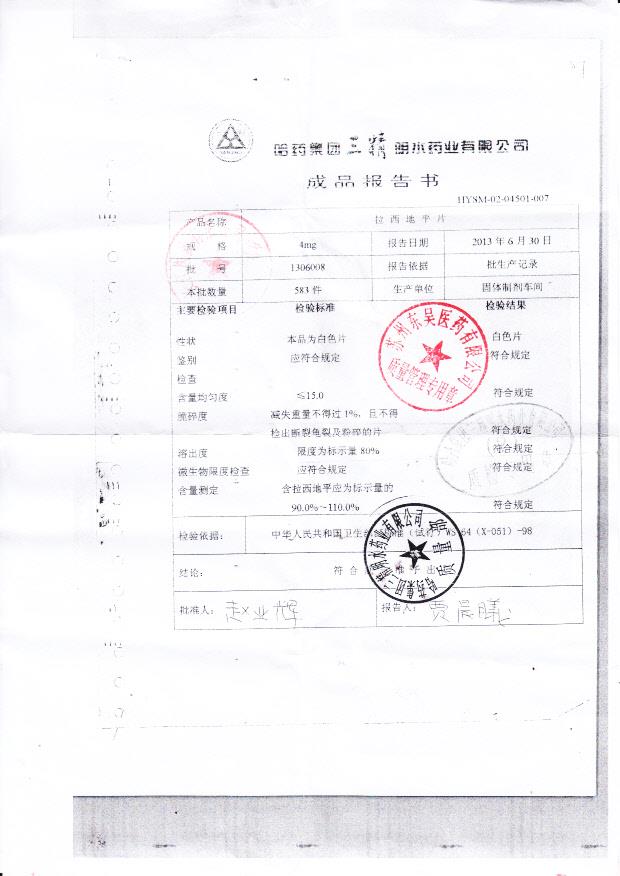 哈药集团三精明水药业有限公司
成品报告书
HYSM-02-04501-007
产品名称 拉西地平片
规格 4mg 报告日期 2013 年 6 月 30 日
批号 1306008 报告依据 批生产记录
本批数量 583 件 生产单位 固体制剂车间
主要检验项目 检验标准 检验结果
性状 本品为白色片 白色片
鉴别 应符合规定 符合规定
检查
含量均匀度 ≤15.0 符合规定
脆碎度 减失重量不得过 1%，且不得
检出断裂龟裂及粉碎的片 符合规定
溶出度 限度为标示量 80% 符合规定
微生物限度检查 应符合规定 符合规定
含量测定 含拉西地平应为标示量的
90.0%~110.0% 符合规定
检验依据: 中华人民共和国卫生 （试行） 64（X-051）-98
结论: 符合 准予出
批准人: 赵业辉 报告人: 贾晨曦
苏州东吴医药有限公司
质量管理专用章
哈药集团三精明水药业有限公司
质量部